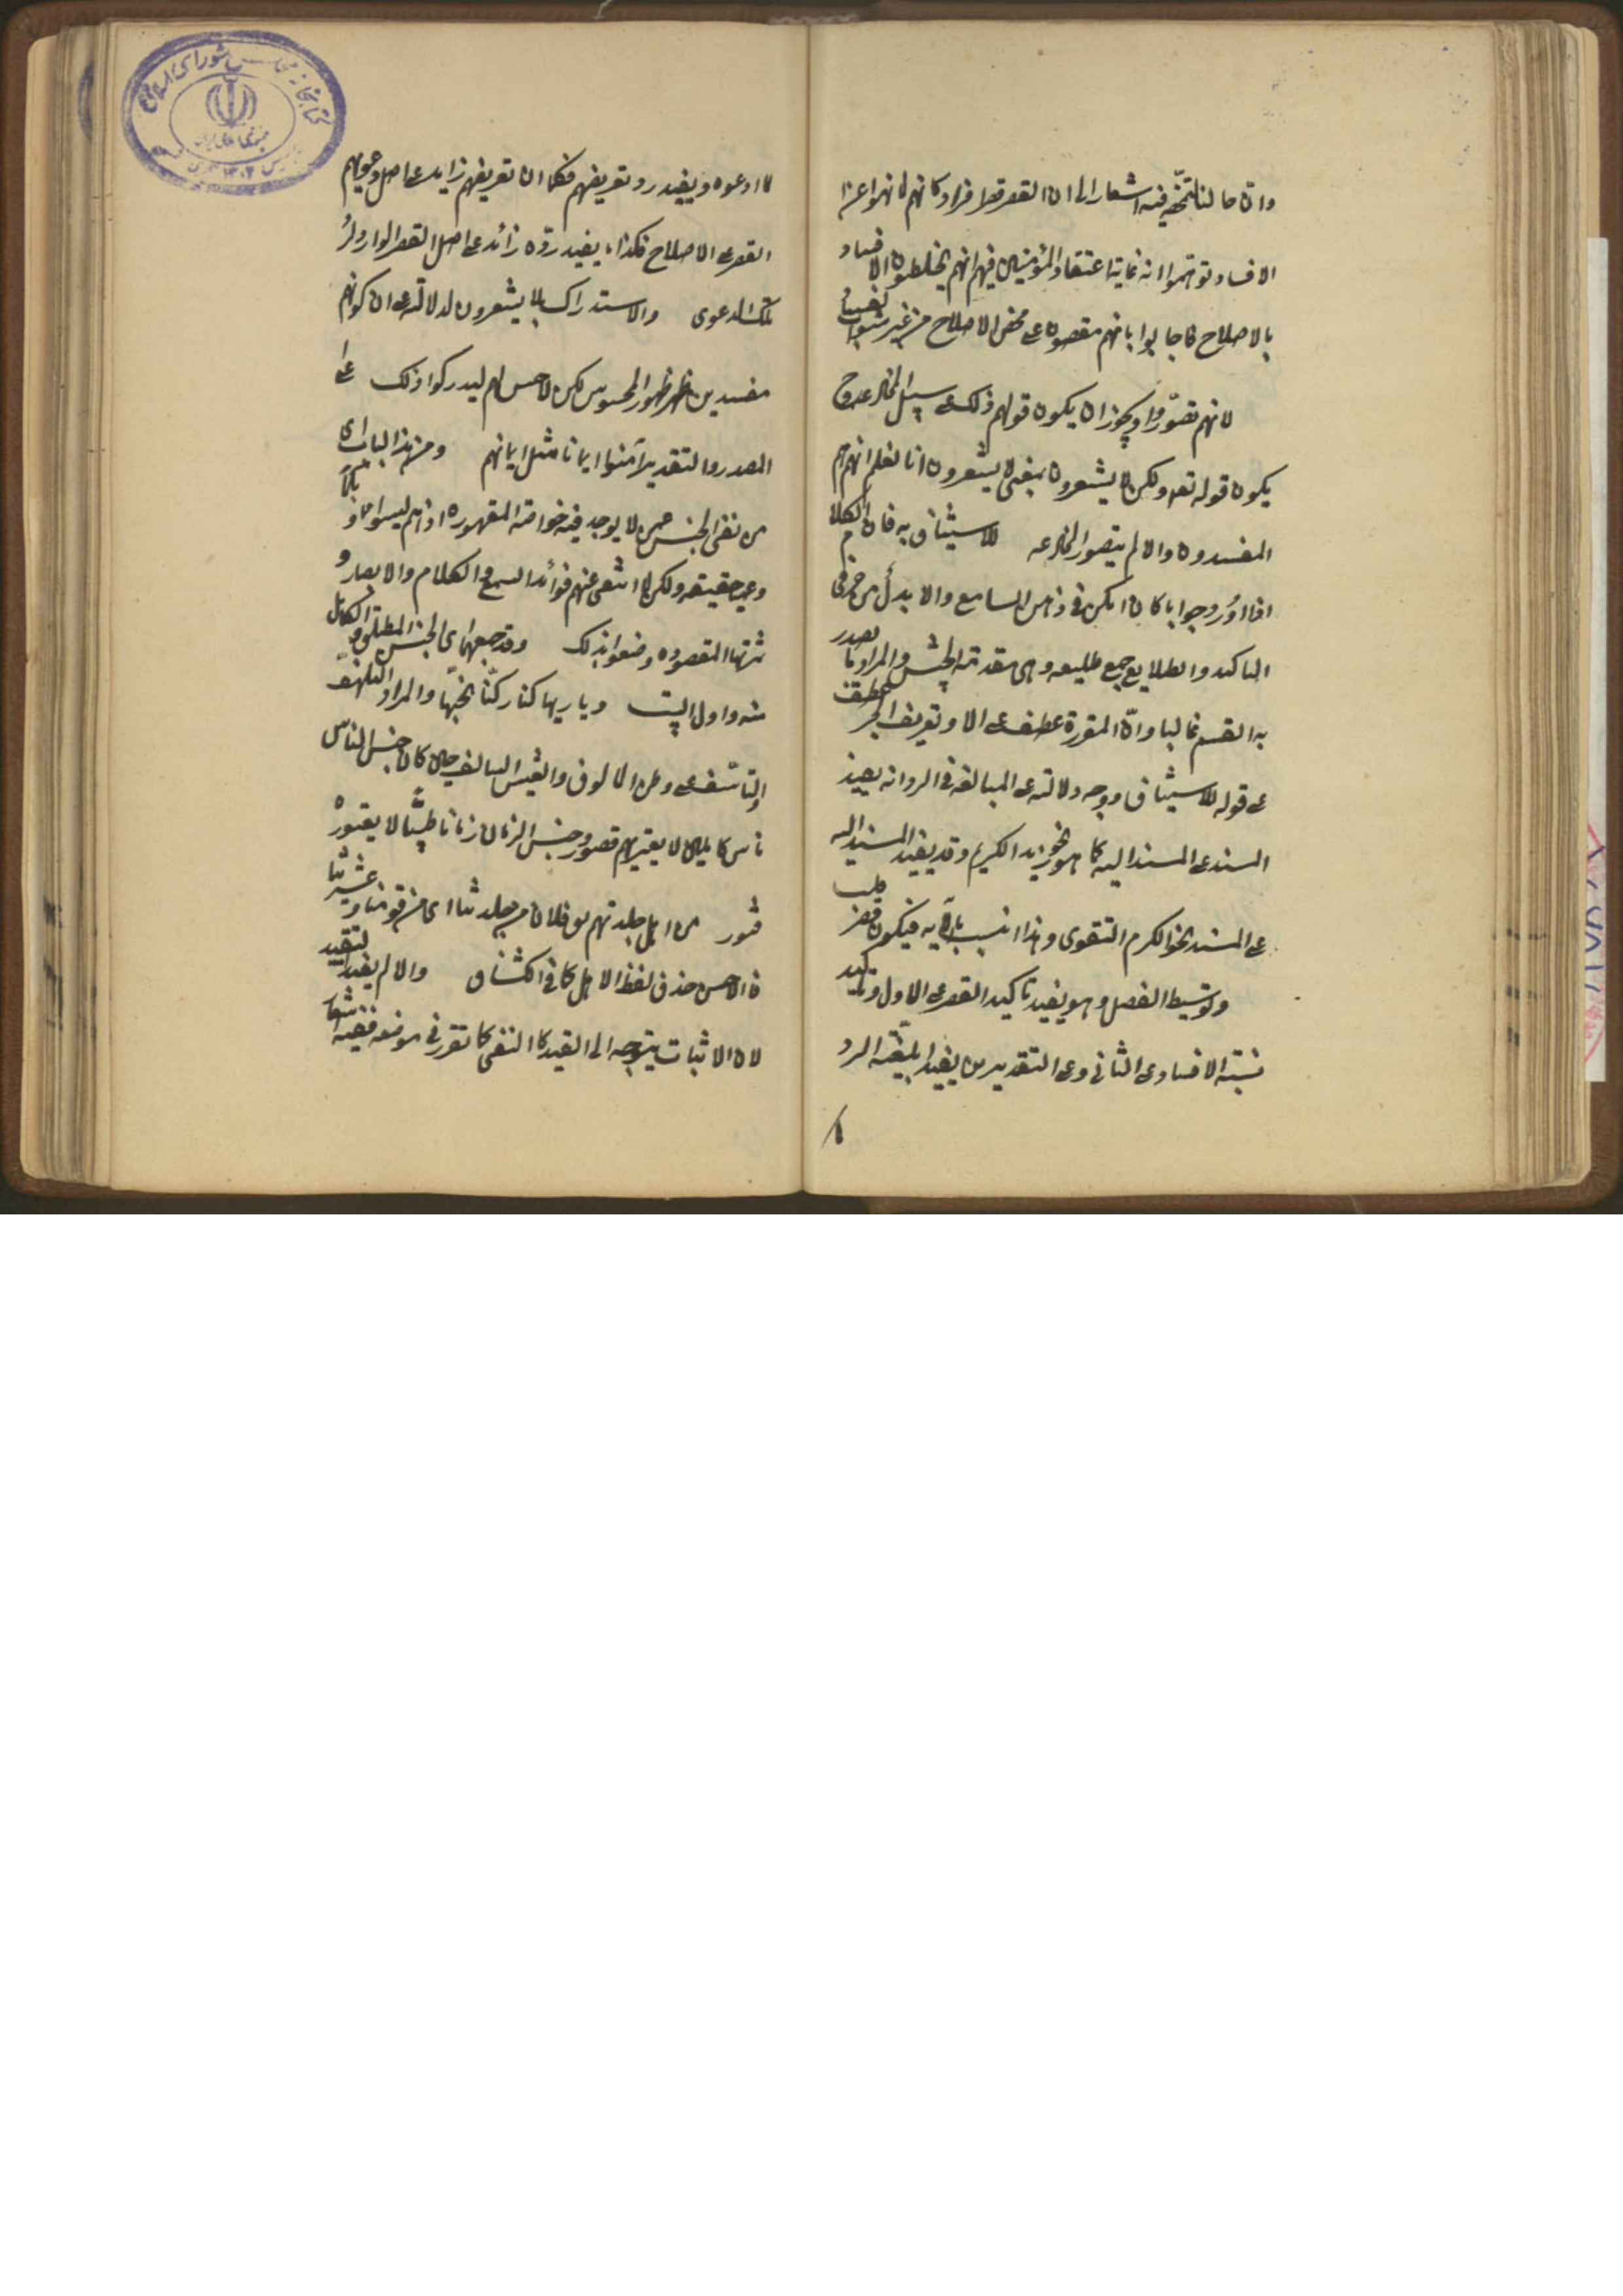 وان حالنا متمحضة فيه اشعار الى ان القصر قصر افراد وكانهم لما نهوا عن
الافساد توهموا انه غاية اعتقاد المؤمنين فيهم انهم يخلطون الافساد
بالاصلاح فاجابوا بانهم مقصورون على محض الاصلاح من غير شوائب
لانهم تصوروا ويجوز ان يكون قولهم ذلك على سبيل المخادعة وح
يكون قوله تعه ولكن لا يشعرون بمعنى لا يشعرون انا نعلم انهم هم
المفسدون والا لم يتصور المخادعه للاستيناف به فان الكلام
اذا اورد جوابا كان امكن في ذهن السامع والا يدل من حرفى
التاكيد والطلايع جمع طليعه وهى مقدمة الجيش والمراد بما يصدر
به القسم غالبا وان المقررة عطف على الا وتعريف الخبر عطف
على قوله للاستيناف ووجه دلالته على المبالغة في الرد انه يفيد
المسند على المسند اليه كما هو نحو زيد الكريم وقد يفيد المسند اليه
على المسند نحو الكرم التقوى وهذا انسب بالآيه فيكون قصر قلب
وتوسيط الفصل وهو يفيد تاكيد القصر على الاول وتاكيد
نسبة الافساد على الثانى وعلى التقديرين يفيد ابلغية الرد
لما ادعوه ويفيد رد تعريضهم فكما ان تعريضهم زايد على اصل دعويهم
القصر على الاصلاح فكذا ما يفيد رده زائد على اصل القصر الوارد لرد
تلك الدعوى والاستدراك بلا يشعرون لدلالته على ان كونهم
مفسدين ظهر ظهور المحسوس لكن لا حس لهم ليدركوا ذلك على
المصدر والتقدير آمنوا ايمانا مثل ايمانهم ومن هذا الباب اى
من نفى الجنس عمن لا يوجد فيه خواصه المقصوده اذ هم ليسوا
وعمى حقيقه ولكن لما انتفى عنهم فوائد السمع والكلام والابصار و
ثمرتها المقصوده وضعوا بذلك وقد جمعهما اى الجنس المطلق والكامل
منه واول البيت ديار بها كنا وكنا نحبها والمراد التلهف
والتاسف على وطن المالوف والعيش السالف حين كان جنس الناس
ناس كاملين لا يعتريهم قصور وجنس الزمان زمانا طيبا لا يعتوره
فتور من اهل جلدتهم يق فلان من جلدتنا اى من قومنا وعشيرتنا
فالاحسن حذف لفظ الاهل كما في الكشاف والا لم يفد التقييد
لان الاثبات يتوجه الى القيد كالنفى كما تقرر في موضعه ففيه اشعار